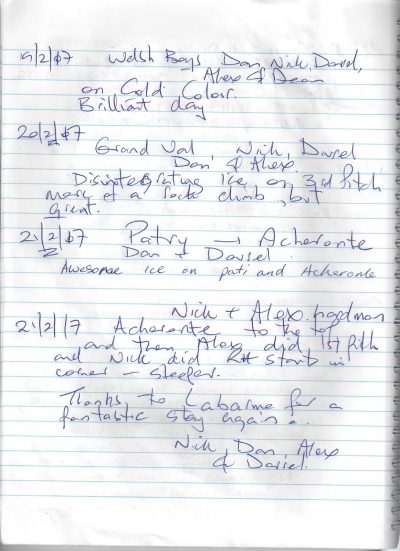 19/2/07 Welsh Boys Dan, Nick, Daniel,
Alex & Dean
on Cold Colour.
Brilliant day
20/2/07
Grand Val, Nick, Daniel
Dan & Alex.
Disintegrating ice on 3rd Pitch
more of a rock climb, but
Great.
21/2/07 Patry → Acheronte
Dan + Daniel
Awesome ice on pati and Acheronte
Nick + Alex hardman
21/2/17 Acheronte to the top
and then Alex did 1st Pitch
and Nick did start in
corner - steeper.
Thanks to Labarme for a
fantastic stay again.
Nick, Dan, Alex
& Daniel.